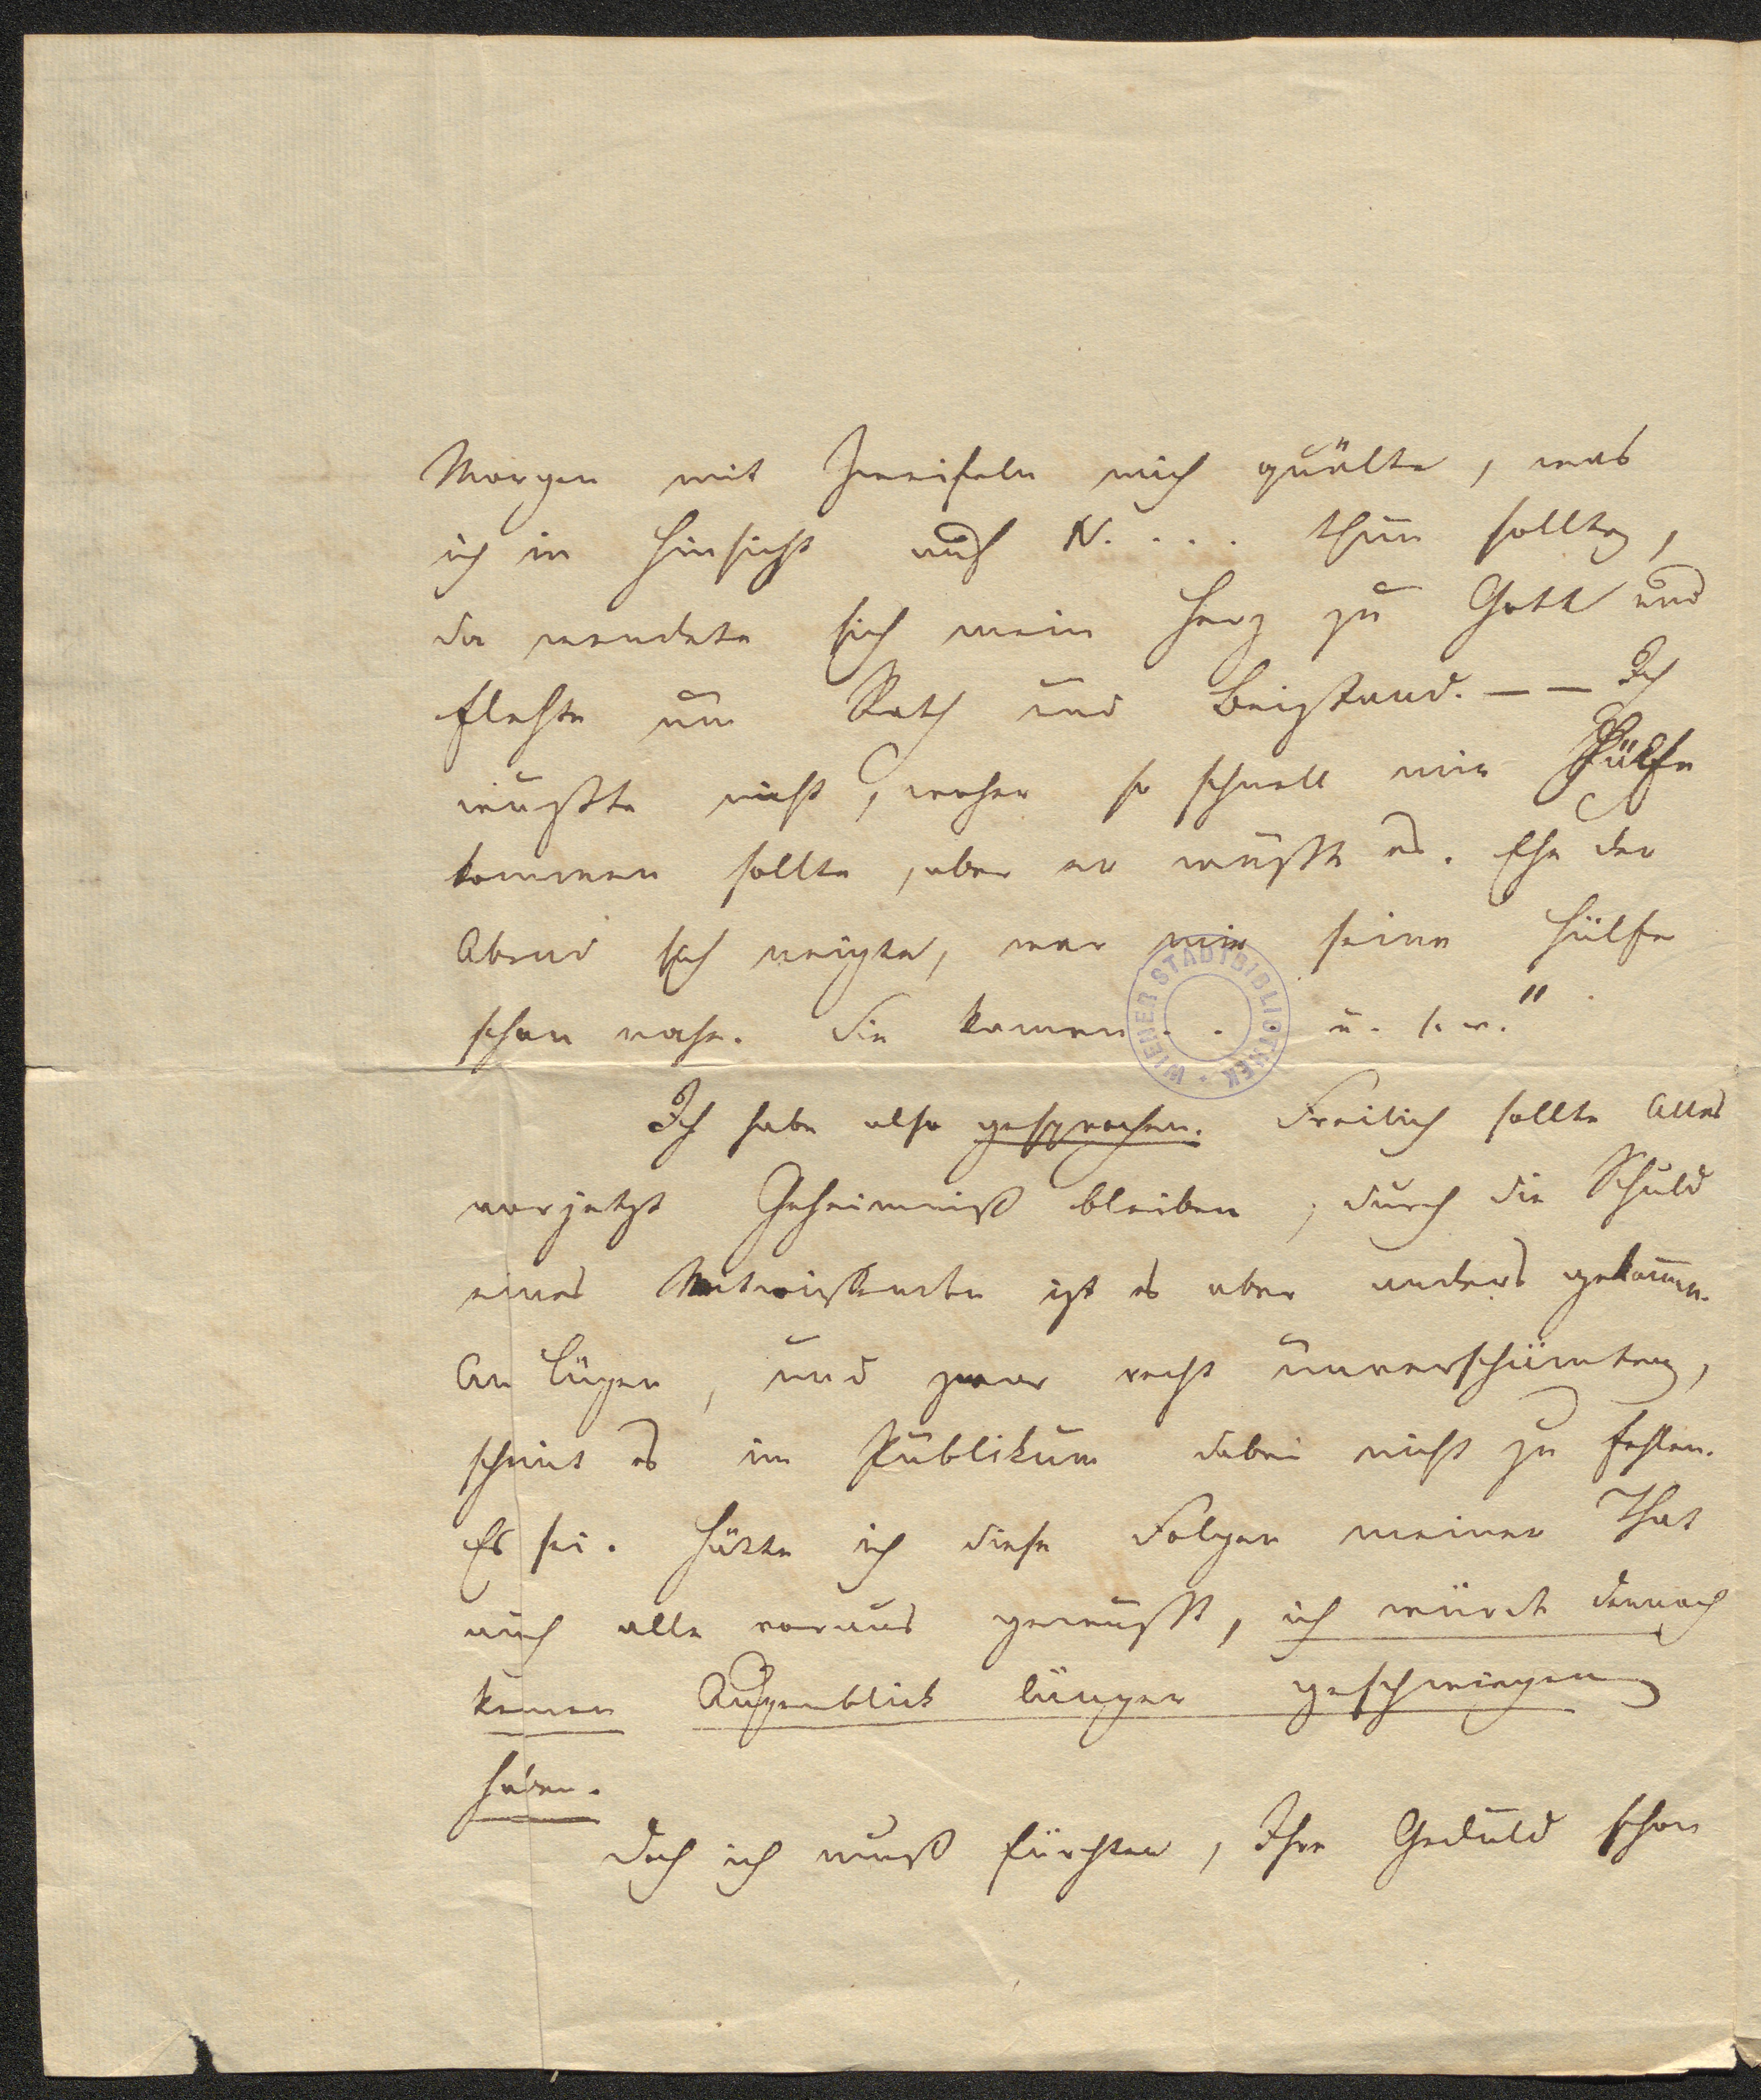 Morgen mit Zweifeln mich quälte, was
ich in Hinsicht auf N. . . . thun sollte,
da wendete sich mein Herz zu Gott und
flehte um Rath und Beistand. — — Ich
wußte nicht, woher so schnell mir Hülfe
kommen sollte, aber er wußte es. Ehe der
Abend sich neigte, war mir seine Hülfe
schon nahe. Sie kamen . . . u. s. w."
WIENER STADTBIBLIOTHEK
Ich habe also gesprochen. Freilich sollte Alles
vorjetzt Geheimniß bleiben, durch die Schuld
eines Mitwissenden ist es aber anders gekommen.
An Lügen, und zwar recht unverschämten,
scheint es im Publikum dabei nicht zu fehlen.
Es sei. Hätte ich diese Folgen meiner That
auch alle voraus gewußt, ich würde dennoch
keinen Augenblick länger geschwiegen
haben.
Doch ich muß fürchten, Ihre Geduld schon